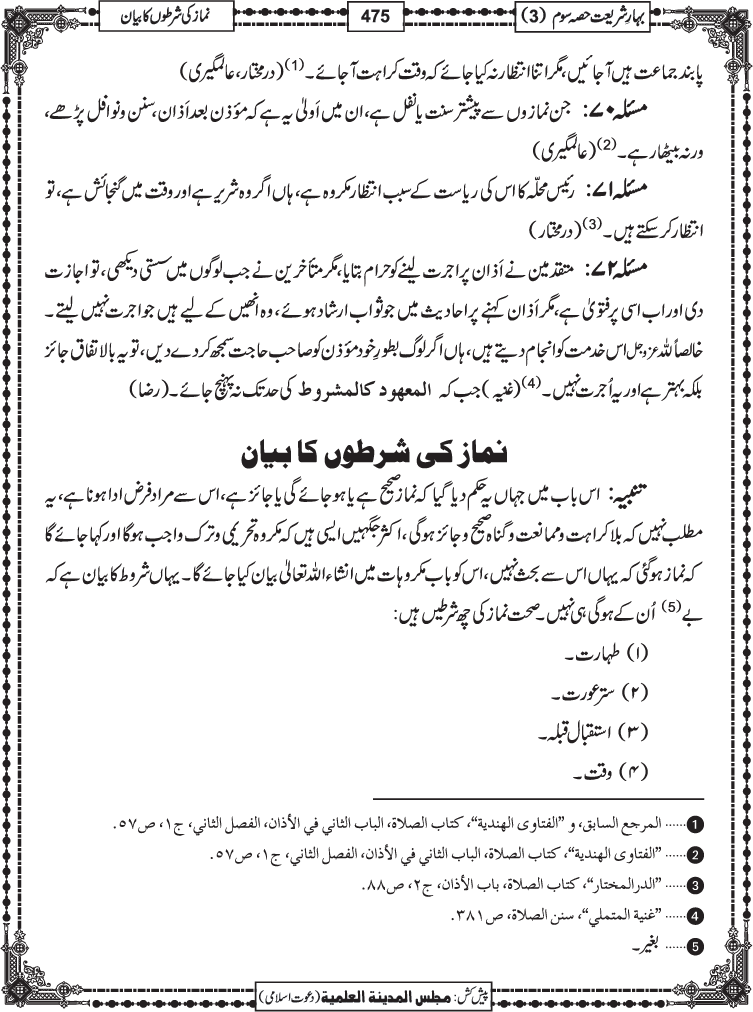 بہار شریعت حصہ سوم (3)
475
نماز کی شرطوں کا بیان
پابند جماعت ہیں آجائیں، مگر اتنا انتظار نہ کیا جائے کہ وقت کراہت آجائے۔ (1) (درمختار، عالمگیری)
مسئلہ ۷۰: جن نمازوں سے پیشتر سنت یا نفل ہے، ان میں اَولیٰ یہ ہے کہ مؤذن بعد اَذان، سنن و نوافل پڑھے،
ورنہ بیٹھا رہے۔ (2) (عالمگیری)
مسئلہ ۷۱: رئیس محلّہ کا اس کی ریاست کے سبب انتظار مکروہ ہے، ہاں اگر وہ شریر ہے اور وقت میں گنجائش ہے، تو
انتظار کر سکتے ہیں۔ (3) (درمختار)
مسئلہ ۷۲: متقدمین نے اَذان پر اجرت لینے کو حرام بتایا، مگر متأخرین نے جب لوگوں میں سستی دیکھی، تو اجازت
دی اور اب اسی پر فتویٰ ہے، مگر اَذان کہنے پر احادیث میں جو ثواب ارشاد ہوئے، وہ انھیں کے لیے ہیں جو اجرت نہیں لیتے۔
خالصاً للہ عزوجل اس خدمت کو انجام دیتے ہیں، ہاں اگر لوگ بطورِ خود مؤذن کو صاحب حاجت سمجھ کر دے دیں، تو یہ بالاتفاق جائز
بلکہ بہتر ہے اور یہ اُجرت نہیں۔ (4) (غنیہ) جب کہ المعھود کالمشروط کی حد تک نہ پہنچ جائے۔ (رضا)
نماز کی شرطوں کا بیان
تنبیہ: اس باب میں جہاں یہ حکم دیا گیا کہ نماز صحیح ہے یا ہو جائے گی یا جائز ہے، اس سے مراد فرض ادا ہونا ہے، یہ
مطلب نہیں کہ بلا کراہت و ممانعت و گناہ صحیح و جائز ہوگی، اکثر جگہیں ایسی ہیں کہ مکروہ تحریمی و ترک واجب ہوگا اور کہا جائے گا
کہ نماز ہوگئی کہ یہاں اس سے بحث نہیں، اس کو باب مکروہات میں انشاء اللہ تعالیٰ بیان کیا جائے گا۔ یہاں شروط کا بیان ہے کہ
بے (5) اُن کے ہوگی ہی نہیں۔ صحت نماز کی چھ شرطیں ہیں:
(۱) طہارت۔
(۲) ستر عورت۔
(۳) استقبال قبلہ۔
(۴) وقت۔
1 ...... المرجع السابق، و ”الفتاوى الهندية“، كتاب الصلاة، الباب الثاني في الأذان، الفصل الثاني، ج١، ص٥٧.
2 ...... ”الفتاوى الهندية“، كتاب الصلاة، الباب الثاني في الأذان، الفصل الثاني، ج١، ص٥٧.
3 ...... ”الدرالمختار“، كتاب الصلاة، باب الأذان، ج٢، ص٨٨.
4 ...... ”غنية المتملي“، سنن الصلاة، ص٣٨١.
5 ...... بغیر۔
پیش کش: مجلس المدينة العلمية (دعوت اسلامی)